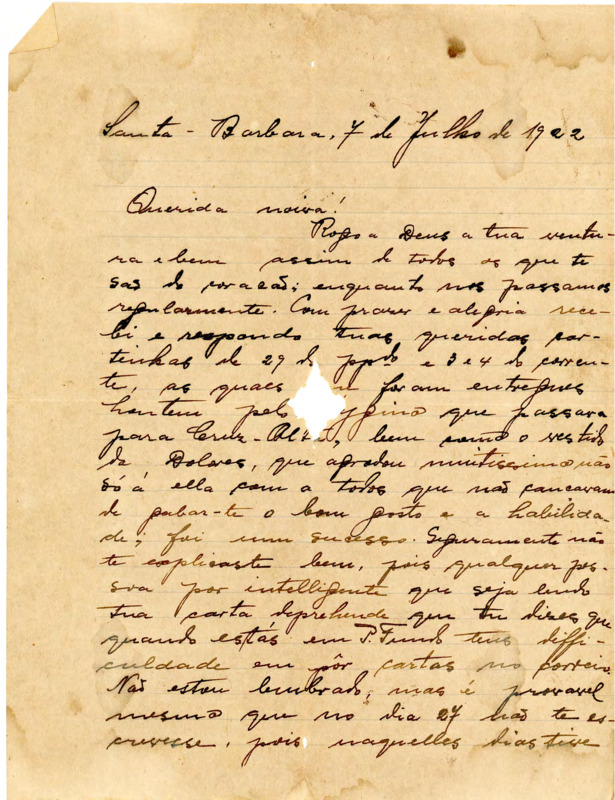 Santa - Barbara, 7 de Julho de 1922
Querida noiva!
Rogo a Deus a tua ventu-
ra e bem assim de todos os que te
sas do coracaõ; enquanto nos passamos
regularmente. Com prazer e alegria rece-
bi e respondo tuas queridas car-
tinhas de 29 do ppdo e 3 e 4 do corren-
te, as quaes foram entregues
hontem pelo que passava
para Cruz-Alta, bem como o vestido
da Dolores, que agradou muitissimo não
só á ella com a todos que não cancavam
de gabar-te o bom gosto e a habilida-
de; foi um sucesso. Seguramente não
te explicaste bem, pois qualquer pes-
soa por intelligente que seja lendo
tua carta deprehende que tu dizes que
quando estás em P. Fundo tens diffi-
culdade em pôr cartas no correio.
Não estou lembrado, mas é provavel
mesmo que no dia 27 não te es-
crevesse, pois naquelles dias tive